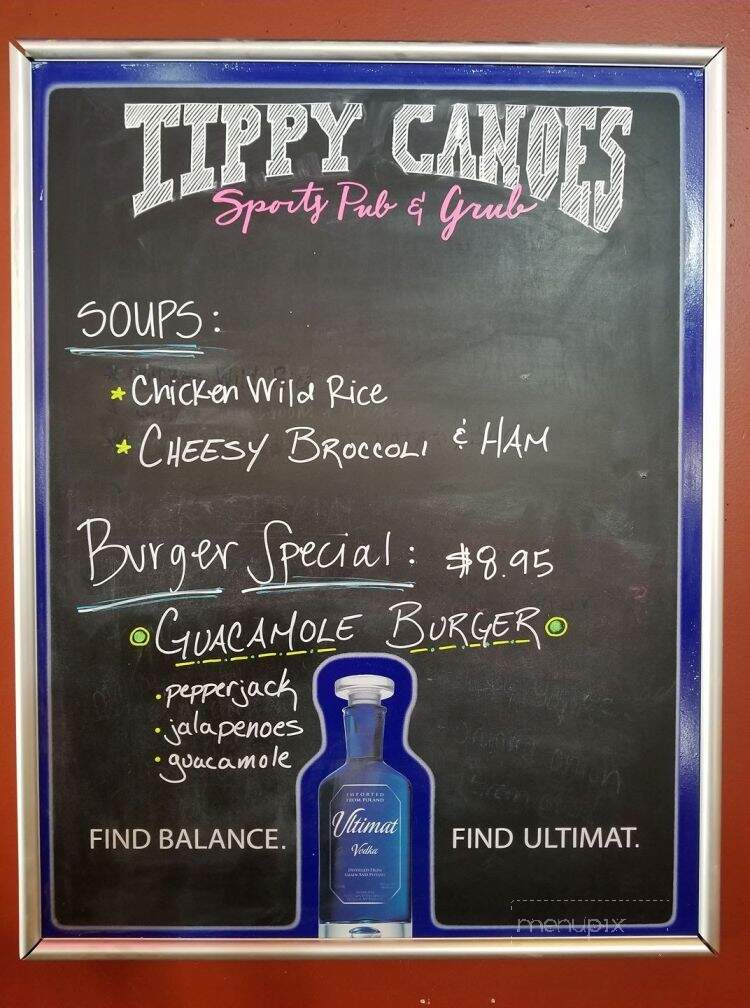 TIPPY CANOES
Sports Pub & Grub
SOUPS:
* Chicken Wild Rice
* CHEESY BROCCOLI & HAM
Burger Special: $8.95
GUACAMOLE BURGER
· pepperjack
· jalapenoes
· guacamole
IMPORTED
FROM POLAND
Ultimat
Vodka
DISTILLED FROM
GRAIN AND POTATO
FIND BALANCE. FIND ULTIMAT.
menupix